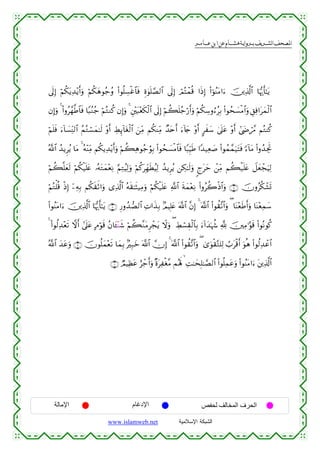 المصحف الشريف برواية هشام عن ابن عامر
يَٰٓأَيُّهَا ٱلَّذِينَ ءَامَنُوٓا۟ إِذَا قُمْتُمْ إِلَى ٱلصَّلَوٰةِ فَٱغْسِلُوا۟ وُجُوهَكُمْ وَأَيْدِيَكُمْ إِلَى
ٱلْمَرَافِقِ وَٱمْسَحُوا۟ بِرُءُوسِكُمْ وَأَرْجُلَكُمْ إِلَى ٱلْكَعْبَيْنِ ۚ وَإِن كُنتُمْ جُنُبًا فَٱطَّهَّرُوا۟ ۚ وَإِن
كُنتُم مَّرْضَىٰٓ أَوْ عَلَىٰ سَفَرٍ أَوْ جَآءَ أَحَدٌ مِّنكُم مِّنَ ٱلْغَآئِطِ أَوْ لَٰمَسْتُمُ ٱلنِّسَآءَ فَلَمْ
تَجِدُوا۟ مَآءً فَتَيَمَّمُوا۟ صَعِيدًا طَيِّبًا فَٱمْسَحُوا۟ بِوُجُوهِكُمْ وَأَيْدِيكُم مِّنْهُ ۚ مَا يُرِيدُ ٱللَّهُ
لِيَجْعَلَ عَلَيْكُم مِّنْ حَرَجٍ وَلَٰكِن يُرِيدُ لِيُطَهِّرَكُمْ وَلِيُتِمَّ نِعْمَتَهُۥ عَلَيْكُمْ لَعَلَّكُمْ
تَشْكُرُونَ وَٱذْكُرُوا۟ نِعْمَةَ ٱللَّهِ عَلَيْكُمْ وَمِيثَٰقَهُ ٱلَّذِى وَاثَقَكُم بِهِۦٓ إِذْ قُلْتُمْ
سَمِعْنَا وَأَطَعْنَا ۖ وَٱتَّقُوا۟ ٱللَّهَ ۚ إِنَّ ٱللَّهَ عَلِيمٌۢ بِذَاتِ ٱلصُّدُورِ يَٰٓأَيُّهَا ٱلَّذِينَ ءَامَنُوا۟
كُونُوا۟ قَوَّٰمِينَ لِلَّهِ شُهَدَآءَ بِٱلْقِسْطِ ۖ وَلَا يَجْرِمَنَّكُمْ شَنْـَٔانُ قَوْمٍ عَلَىٰٓ أَلَّا تَعْدِلُوا۟ ۚ
ٱعْدِلُوا۟ هُوَ أَقْرَبُ لِلتَّقْوَىٰ ۖ وَٱتَّقُوا۟ ٱللَّهَ ۚ إِنَّ ٱللَّهَ خَبِيرٌۢ بِمَا تَعْمَلُونَ وَعَدَ ٱللَّهُ
ٱلَّذِينَ ءَامَنُوا۟ وَعَمِلُوا۟ ٱلصَّٰلِحَٰتِ ۙ لَهُم مَّغْفِرَةٌ وَأَجْرٌ عَظِيمٌ
الحرف المخالف لحفص الإدغام الإمالة
الشبكة الإسلامية www.islamweb.net